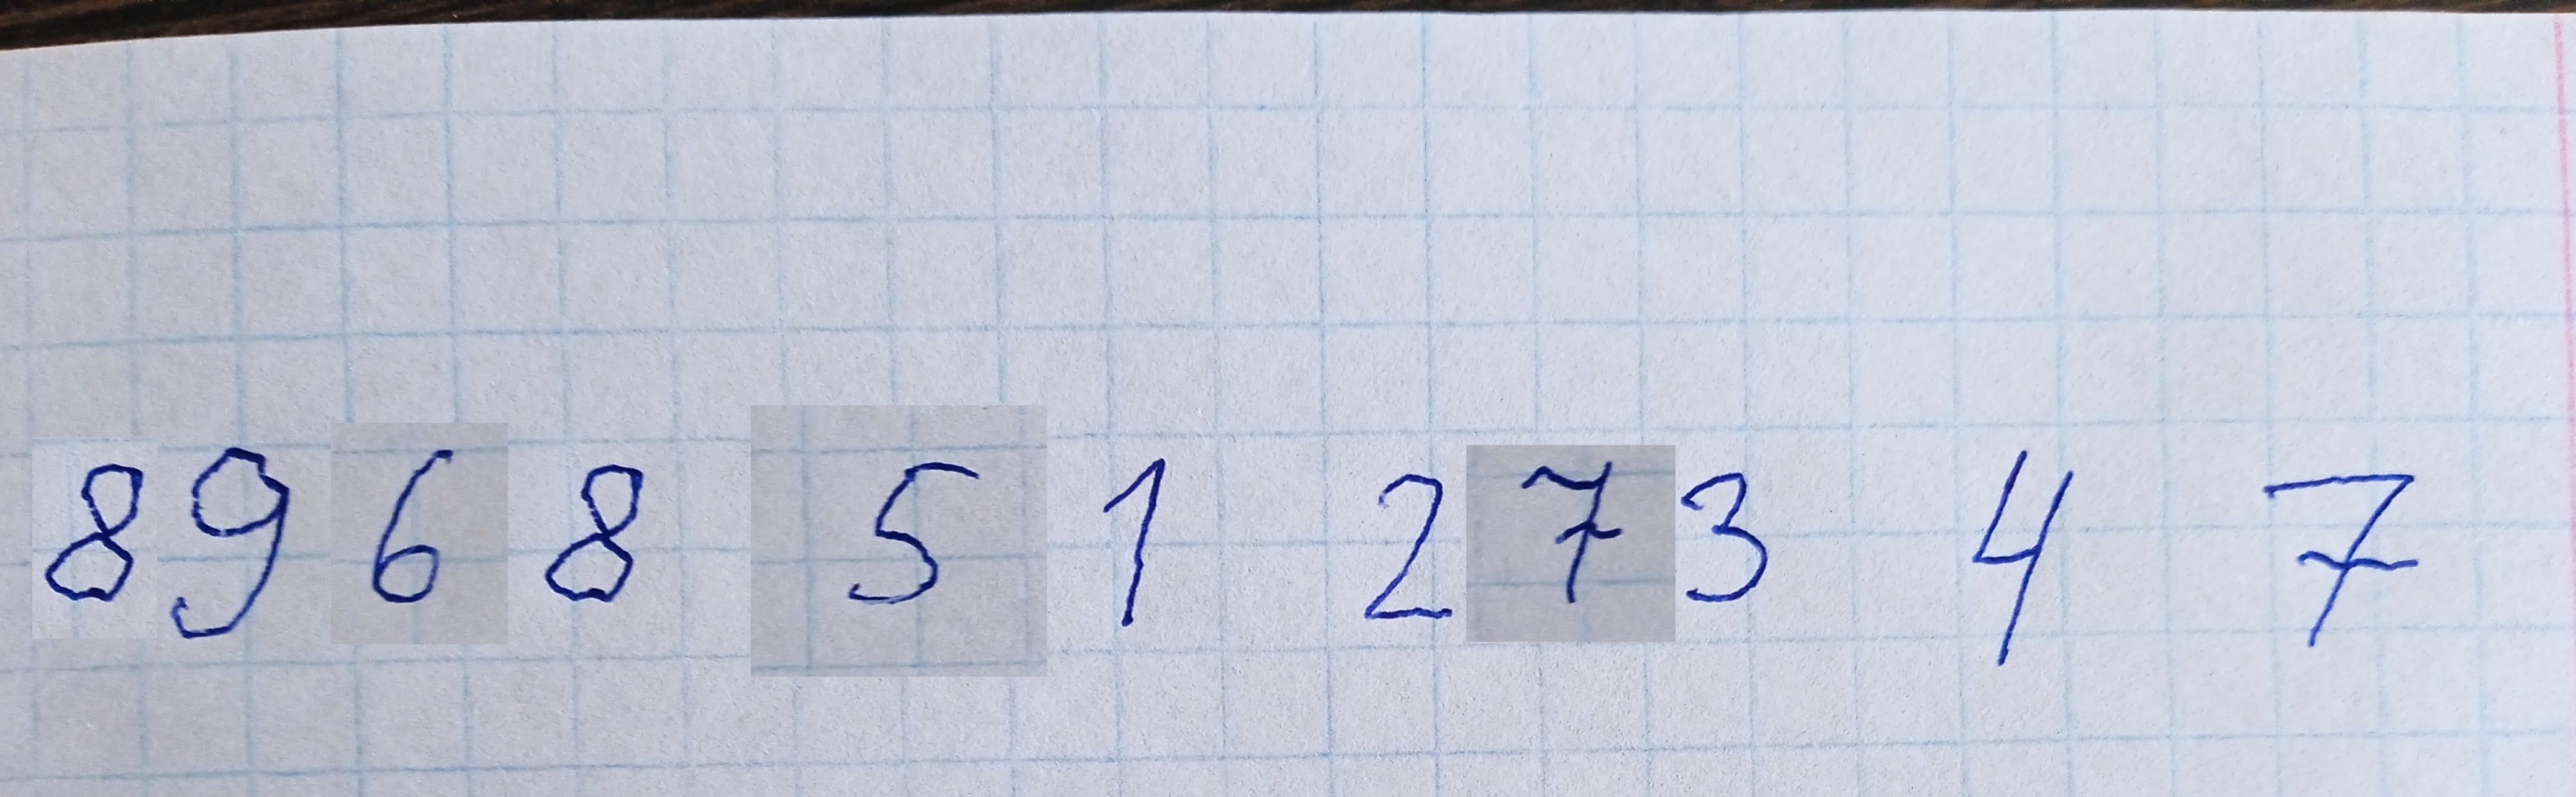 8 9 6 8 5 1 2 7 3 4 7